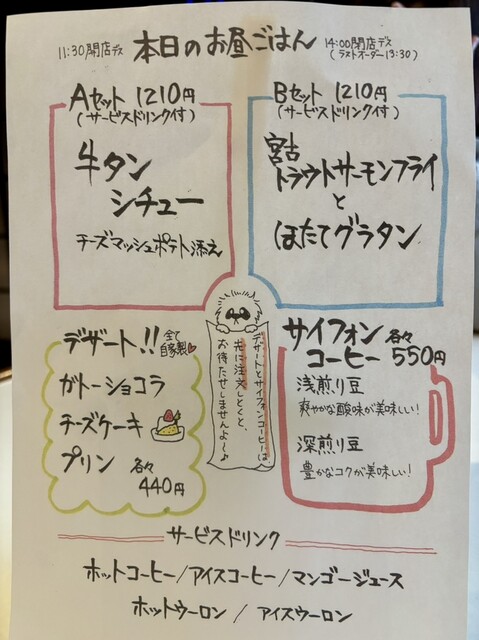 11:30開店デス 本日のお昼ごはん 14:00閉店デス
(ラストオーダー13:30)
Aセット 1210円
(サービスドリンク付)
牛タン
シチュー
チーズマッシュポテト添え
Bセット 1210円
(サービスドリンク付)
宮古
トラウトサーモンフライ
と
ほたてグラタン
デザート!! 全て
自家製
ガトーショコラ
チーズケーキ
プリン 各々
440円
デザートとサイフォンコーヒーは
先に注文しとくと、
お待たせしませんよ〜♪
サイフォン 各々
コーヒー 550円
浅煎り豆
爽やかな酸味が美味しい!
深煎り豆
豊かなコクが美味しい!
サービスドリンク
ホットコーヒー/アイスコーヒー/マンゴージュース
ホットウーロン / アイスウーロン